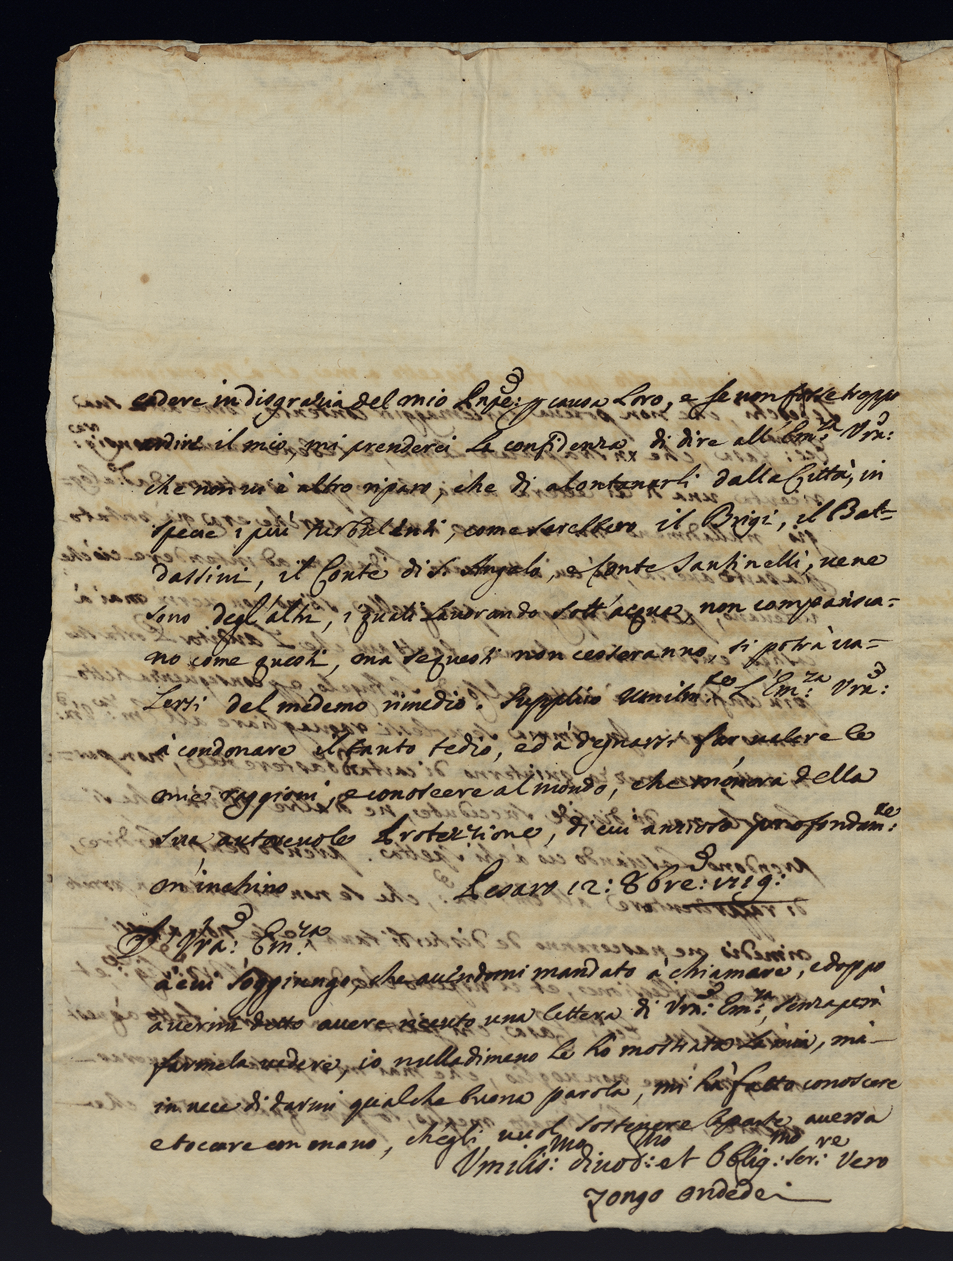 cadere in disgrazia del mio Pnpe: p causa Loro, e se non fosse troppo
ardire il mio, mi prenderei la confidenza di dire all' Em:za Vra:
che non vi è altro riparo, che di alontanarli dalla Città, in
specie i più turbulenti, come sarebbero il Brigi, il Bal=
dassini, il Conte di S. Angelo, e Conte Santinelli, vene
sono degl' altri, i quali lavorando sott' acqua, non comparisca=
no come questi, ma se questi non cesseranno, si potrà va=
lersi del medemo rimedio. Supplico umilm:te L'Em:za Vra:
à condonare il tanto tedio, ed à degnarsi far valere le
mie raggioni, e conoscere al mondo, che m'onora della
sua autorevole Protezzione, di cui ansioso profondam:te
m'inchino Pesaro 12: 8bre: 1719:
D. Vra: Em:za
à cui soggiungo, che avendomi mandato à chiamare, e doppo
avermi detto avere ricevuto una lettera di Vra: Em:za, senza però
farmela vedere, io nulladimeno le hò mostrata la mia, mà
in vece di darmi qualche buona parola, mi hà fatto conoscere
e toccare con mano, ch'egli vuol sostenere la parte aversa
Umilis:mo divot:mo et Obblig:mo Ser:re Vero
Zongo Ondedei